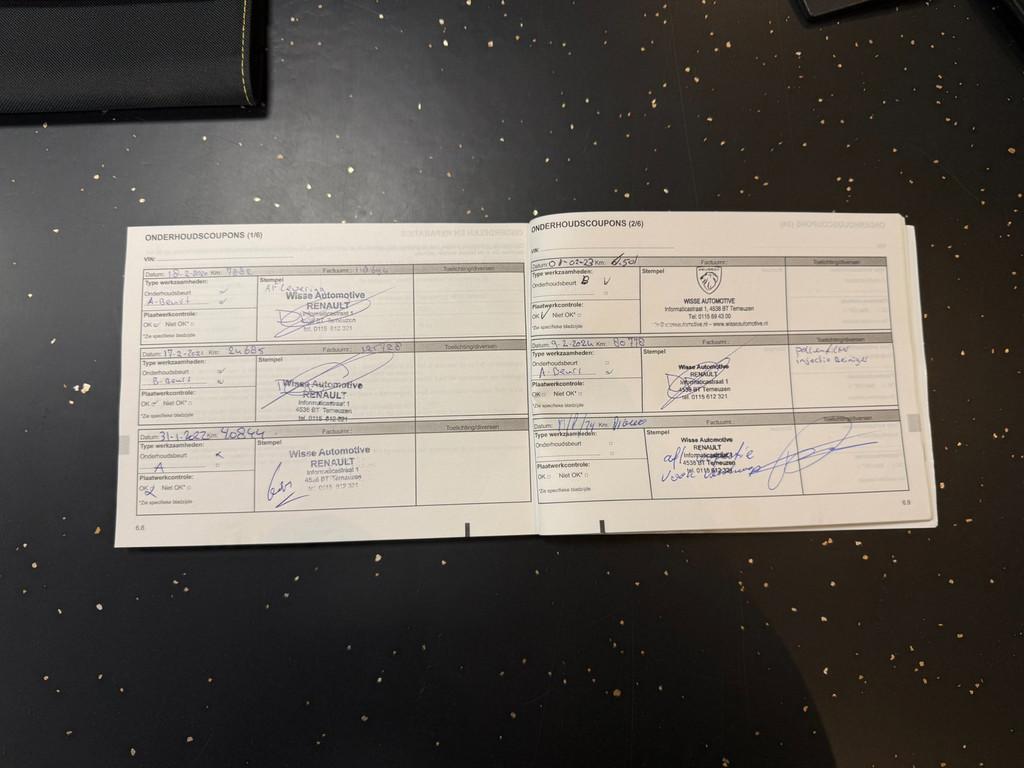 ONDERHOUDSCOUPONS (1/6)
VIN:
Datum: 18-2-2020 Km: Factuurnr.: Toelichting/diversen
Type werkzaamheden: Stempel
Onderhoudsbeurt
A-Beurt
Wisse Automotive
RENAULT
Informaticastraat 1
tel. 0115 612 321
Plaatwerkcontrole:
OK Niet OK*
*Zie specifieke bladzijde
Datum: 17-2-2021 Km: 24685 Factuurnr.: Toelichting/diversen
Type werkzaamheden: Stempel
Onderhoudsbeurt
B-Beurt
Wisse Automotive
RENAULT
Informaticastraat 1
4536 BT Terneuzen
tel. 0115 612 321
Plaatwerkcontrole:
OK Niet OK*
*Zie specifieke bladzijde
Datum: 31-1-2022 Km: 40844 Factuurnr.: Toelichting/diversen
Type werkzaamheden: Stempel
Onderhoudsbeurt
A
Wisse Automotive
RENAULT
Informaticastraat 1
4536 BT Terneuzen
tel. 0115 612 321
Plaatwerkcontrole:
OK Niet OK*
*Zie specifieke bladzijde
6.8
ONDERHOUDSCOUPONS (2/6)
VIN:
Datum: 01-02-23 Km: Factuurnr.: Toelichting/diversen
Type werkzaamheden: Stempel
Onderhoudsbeurt B
PEUGEOT
WISSE AUTOMOTIVE
Informaticastraat 1, 4536 BT Terneuzen
Tel: 0115 69 43 00
Plaatwerkcontrole:
OK Niet OK*
*Zie specifieke bladzijde
Datum: 9-2-2024 Km: 80778 Factuurnr.: Toelichting/diversen
Type werkzaamheden: Stempel
Onderhoudsbeurt
A-Beurt
Wisse Automotive
RENAULT
Informaticastraat 1
4536 BT Terneuzen
tel. 0115 612 321
pollenfilter
injectie Reiniger
Plaatwerkcontrole:
OK Niet OK*
*Zie specifieke bladzijde
Datum: Km: Factuurnr.: Toelichting/diversen
Type werkzaamheden: Stempel
Onderhoudsbeurt
Wisse Automotive
RENAULT
Informaticastraat 1
4536 BT Terneuzen
tel. 0115 612 321
Plaatwerkcontrole:
OK Niet OK*
*Zie specifieke bladzijde
6.9